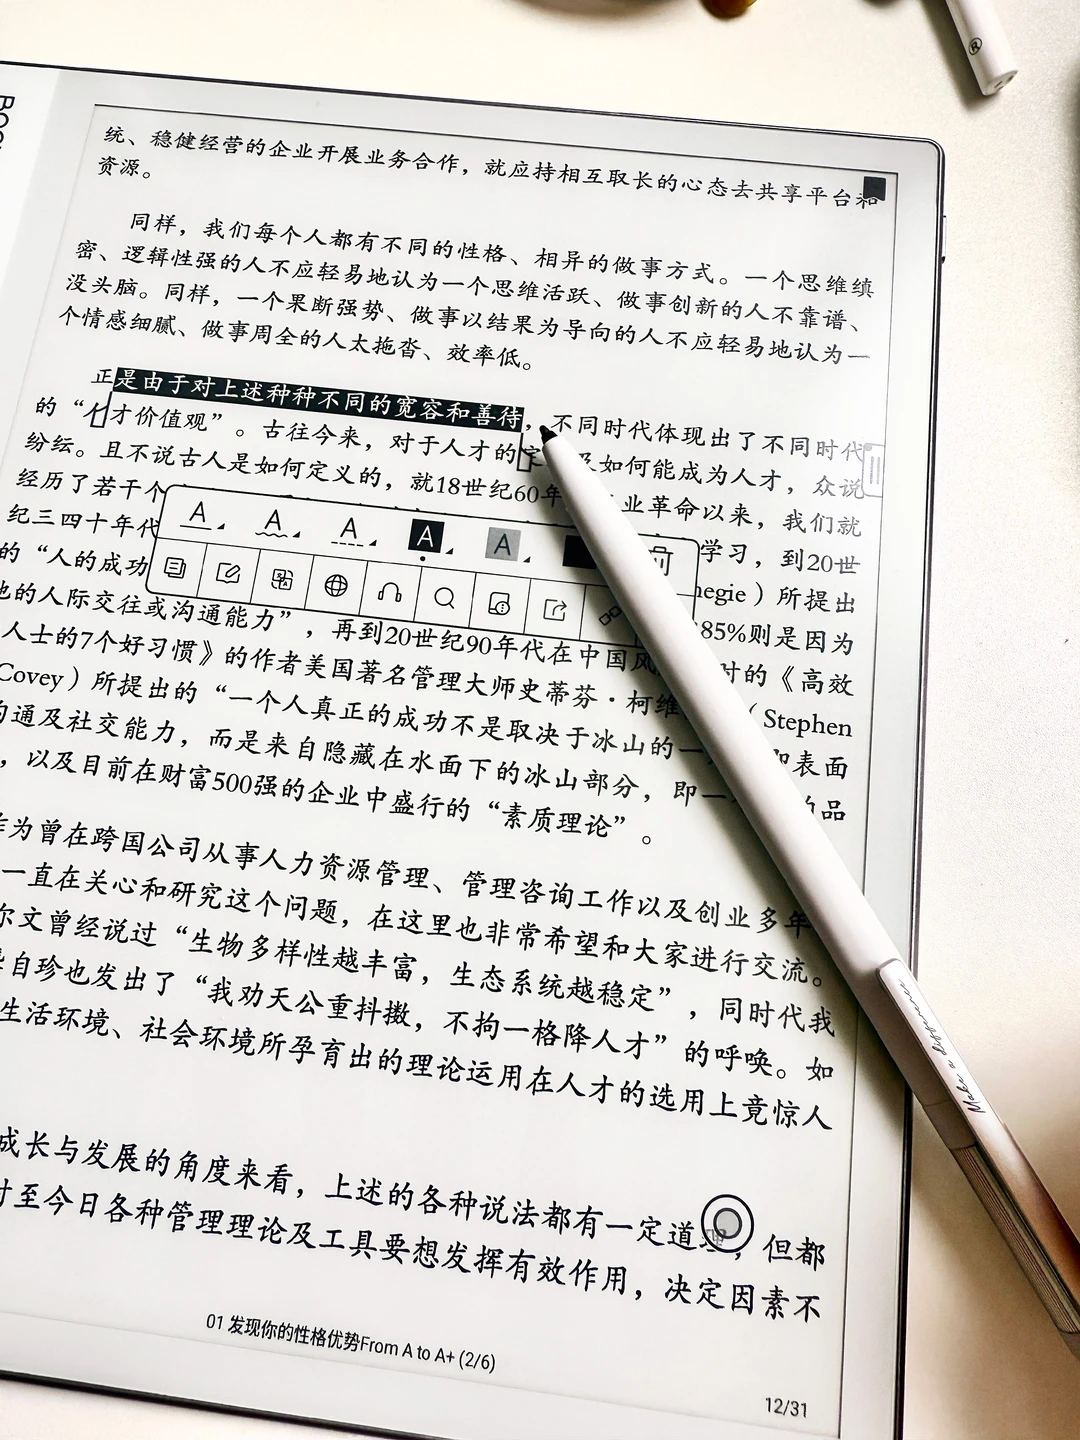 BOOX
®
统、稳健经营的企业开展业务合作，就应持相互取长的心态去共享平台和
资源。
同样，我们每个人都有不同的性格、相异的做事方式。一个思维缜
密、逻辑性强的人不应轻易地认为一个思维活跃、做事创新的人不靠谱、
没头脑。同样，一个果断强势、做事以结果为导向的人不应轻易地认为一
个情感细腻、做事周全的人太拖沓、效率低。
正是由于对上述种种不同的宽容和善待，不同时代体现出了不同时代
的“人才价值观”。古往今来，对于人才的定 及如何能成为人才，众说
纷纭。且不说古人是如何定义的，就18世纪60年 业革命以来，我们就
经历了若干个 学习，到20世
纪三四十年代 negie）所提出
的“人的成功 85%则是因为
他的人际交往或沟通能力”，再到20世纪90年代在中国风 时的《高效
人士的7个好习惯》的作者美国著名管理大师史蒂芬·柯维 （Stephen
Covey）所提出的“一个人真正的成功不是取决于冰山的一 即表面
沟通及社交能力，而是来自隐藏在水面下的冰山部分，即一 的品
，以及目前在财富500强的企业中盛行的“素质理论”。
作为曾在跨国公司从事人力资源管理、管理咨询工作以及创业多年
一直在关心和研究这个问题，在这里也非常希望和大家进行交流。
尔文曾经说过“生物多样性越丰富，生态系统越稳定”，同时代我
自珍也发出了“我劝天公重抖擞，不拘一格降人才”的呼唤。如
生活环境、社会环境所孕育出的理论运用在人才的选用上竟惊人
成长与发展的角度来看，上述的各种说法都有一定道理，但都
时至今日各种管理理论及工具要想发挥有效作用，决定因素不
01 发现你的性格优势From A to A+ (2/6)
12/31
A A A A A
Make a difference